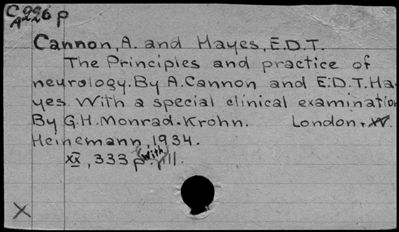 C996p
A226
Cannon, A. and Hayes, E.D.T.
The Principles and practice of
neurology. By A. Cannon and E.D.T. Ha-
yes. With a special clinical examination
By G.H. Monrad-Krohn. London, W.
Heinemann, 1934.
xx, 333 p. with ill.
X